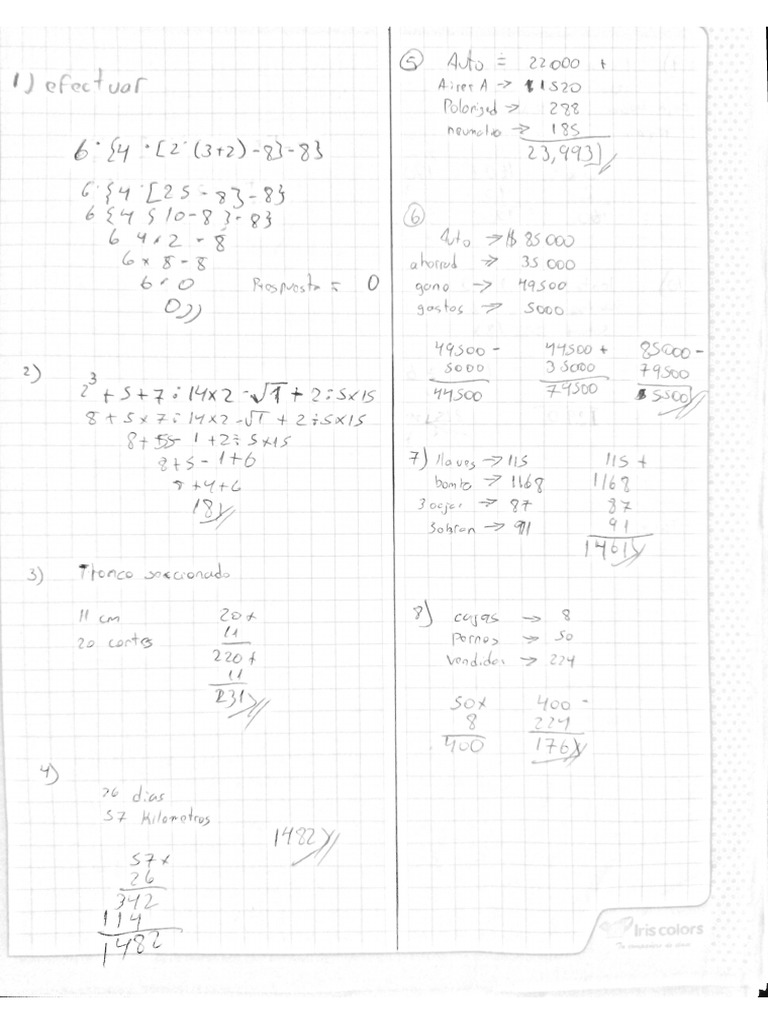 1) efectuar
6 · {4 · [2 · (3+2) - 8} - 8}
6 · {4 · [2 5 - 8} - 8}
6 {4 { 10 - 8 } - 8}
6 4 x 2 - 8
6 x 8 - 8
6 · 0
0
Respuesta = 0
2)
2³ + 5 + 7 ÷ 14 x 2 - √1 + 2 ÷ 5 x 15
8 + 5 x 7 ÷ 14 x 2 - √1 + 2 ÷ 5 x 15
8 + 5 - 1 + 2 ÷ 5 x 15
8 + 5 - 1 + 6
8 + 4 + 6
18
3) Tronco
11 cm
20 cortes
20 x
11
220 +
11
231
4)
26 dias
57 Kilometros
1482
57 x
26
342
114
1482
5 Auto = 22000 +
Aire A → 1520
Polarized → 288
→ 185
23,993
6
Auto → $ 85000
ahorrad → 35 000
gano → 49500
gastos → 5000
49500 - 44500 + 85000 -
5000 35000 79500
44500 79500 5500
7) llaves → 115 115 +
→ 1168 1168
→ 87 87
sobran → 91 91
1461
8) cajas → 8
Pernos → 50
vendidos → 224
50 x 400 -
8 224
400 176
Iris colors